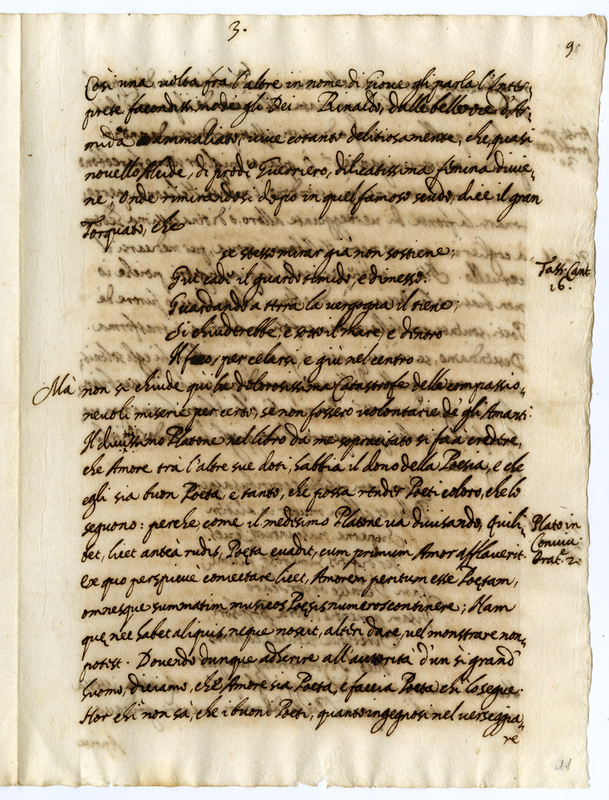 3.
9
Così una volta frà l'altre in nome di Giove gli parla l'Inter,
prete facondissimo degli Dei Rinaldo, dalle belle d'Ar,
mida ammaliato, vive cotanto delitiosamente, che, quasi
novello Alcide, di prode Guerriero, dilicatissima femina divie,
ne; Onde rimirandosi dopio in quel famoso scudo, dice il gran
Torquato, che
se stesso mirar già non sostiene;
Giù cade il guardo timido, e dimesso:
Guardando a terra la vergogna il tiene;
Si chiuderebbe, e sotto il mare, e dentro
Il foco, per celarsi, e giù nel centro.
Tass. Cant.
16.
Mà non si chiude quì la dolorosissima Catastrofe delle compassio,
nevoli miserie per certo, se non fossero volontarie de gli Amanti.
Il divinissimo Platone nel libro da me sopracitato si fà à credere,
che Amore trà l'altre sue doti, habbia il dono della Poesia, e che
egli sia buon Poeta, e tanto, che possa render Poeti coloro, che lo
seguono: perche, come il medesimo Platone và divisando, Quili,
bet, licet anteà rudis, Poeta evadit, cum primùm Amor afflaverit.
Plato in
Conviu.
Orat. 2.
Ex quo perspicuè coniectare licet, Amorem peritum esse Poetam,
omnesque summatim musicos Poesis numeros continere; Nam
quę nec habet aliquis, neque novit, alteri dare, vel monstrare non,
potest. Dovendo dunque adherire all'autorità d'un sì grand'
huomo, diciamo, che Amore sia Poeta, e faccia Poeta chi lo segue.
Hor chi non sà, che i buoni Poeti, quanto ingegnosi nel verseggia,
re